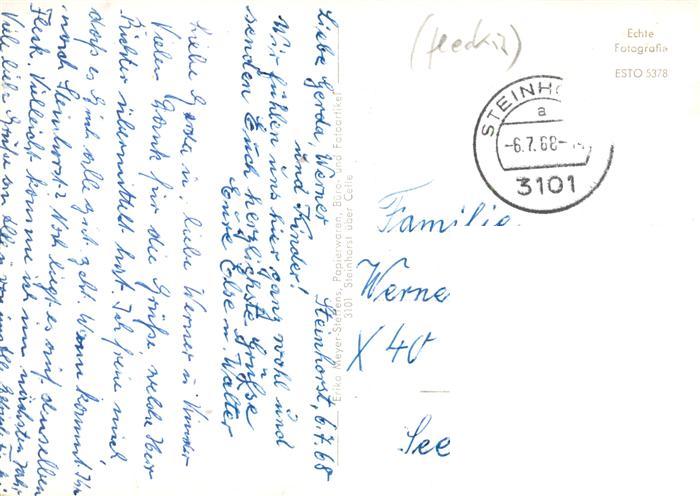 (fleckig)
Echte
Fotografie
ESTO 5378
STEINHO
a
-6.7.68-
3101
Familie
Werne
X 40
See
Erika Meyer-Steffens, Papierwaren, Büro- und Fotoartikel
3101 Steinhorst über Celle
Steinhorst, 6.7.68
Liebe Gerda, Werner
und Kinder!
Wir fühlen uns hier ganz wohl und
senden Euch herzlichste Grüße
Eure Else u. Walter
Liebe Gerda u. liebe Werner u. Kinder
Vielen Dank für die Grüße, welche Herr
Richter übermittelt hat. Ich freue mich
daß es Euch alle gut geht. Wann kommt Ihr
nach Steinhorst? Noch liegt es auf demselben
Fleck. Vielleicht komme ich im nächsten Jahr
Viele liebe Grüße an